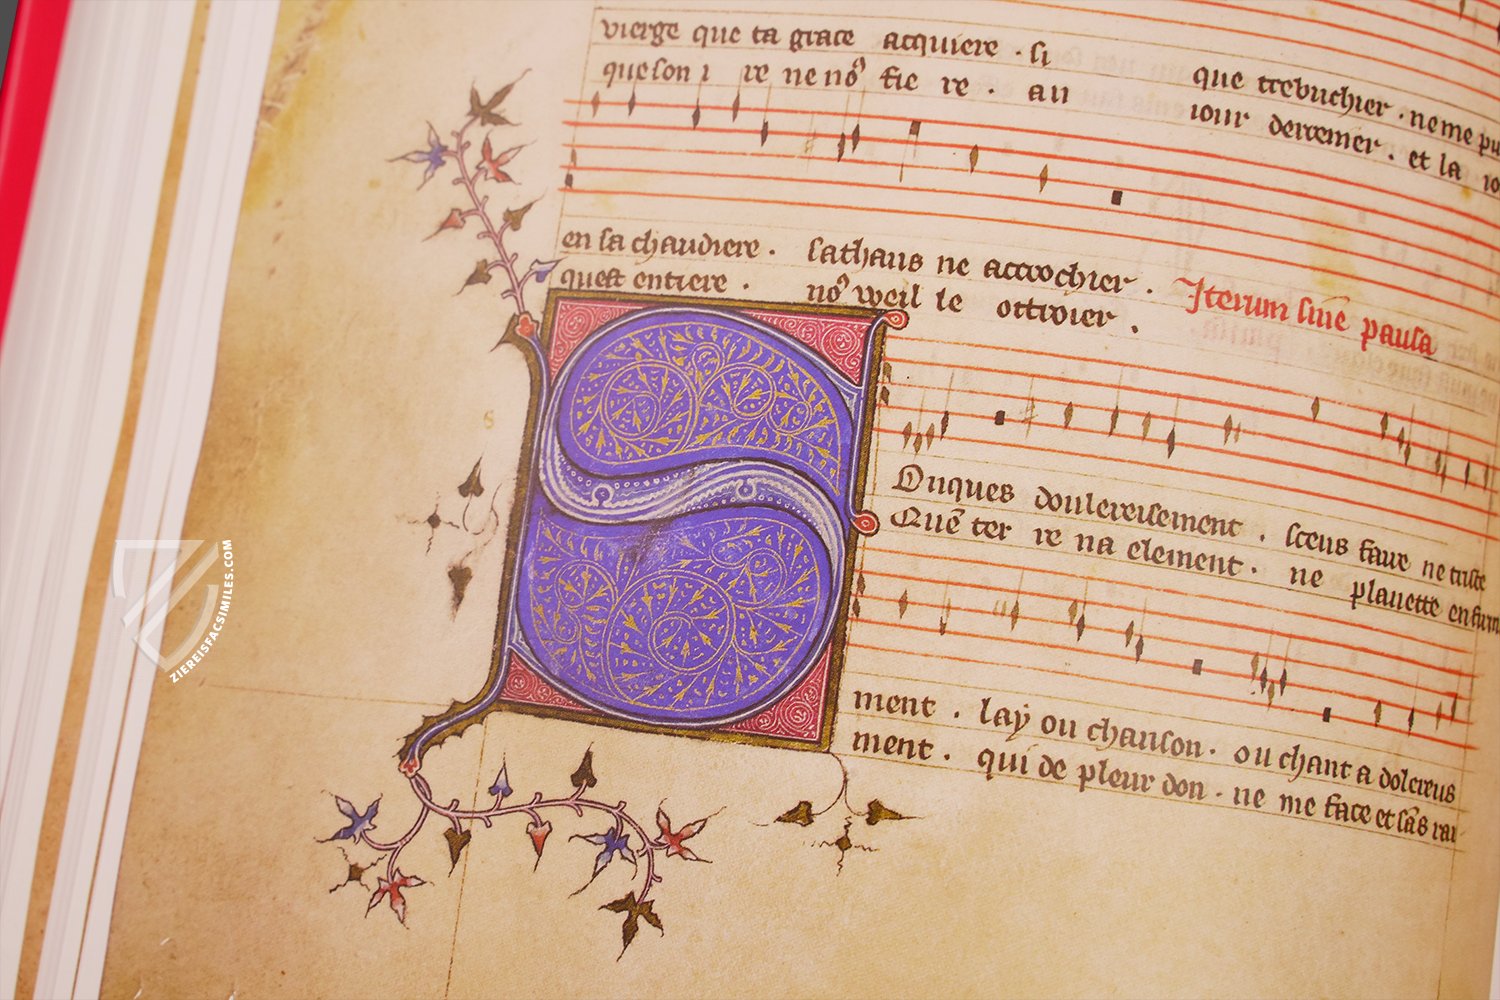 vierge que ta grace acquiere . si que trebuchier . ne me pu
que son i re ne no fie re . au iour derrenier . et la io
en sa chaudiere . sathans ne accrochier .
quest entiere . no weil le ottroier .
Iterum sine pausa
Onques doulereusement . sceus faire ne triste
Quen ter re na element . ne planette en firm
ment . lay ou chanson . ou chant a dolereus
ment . qui de pleur don . ne me face et sans rai
ZIEREISFACSIMILES.COM